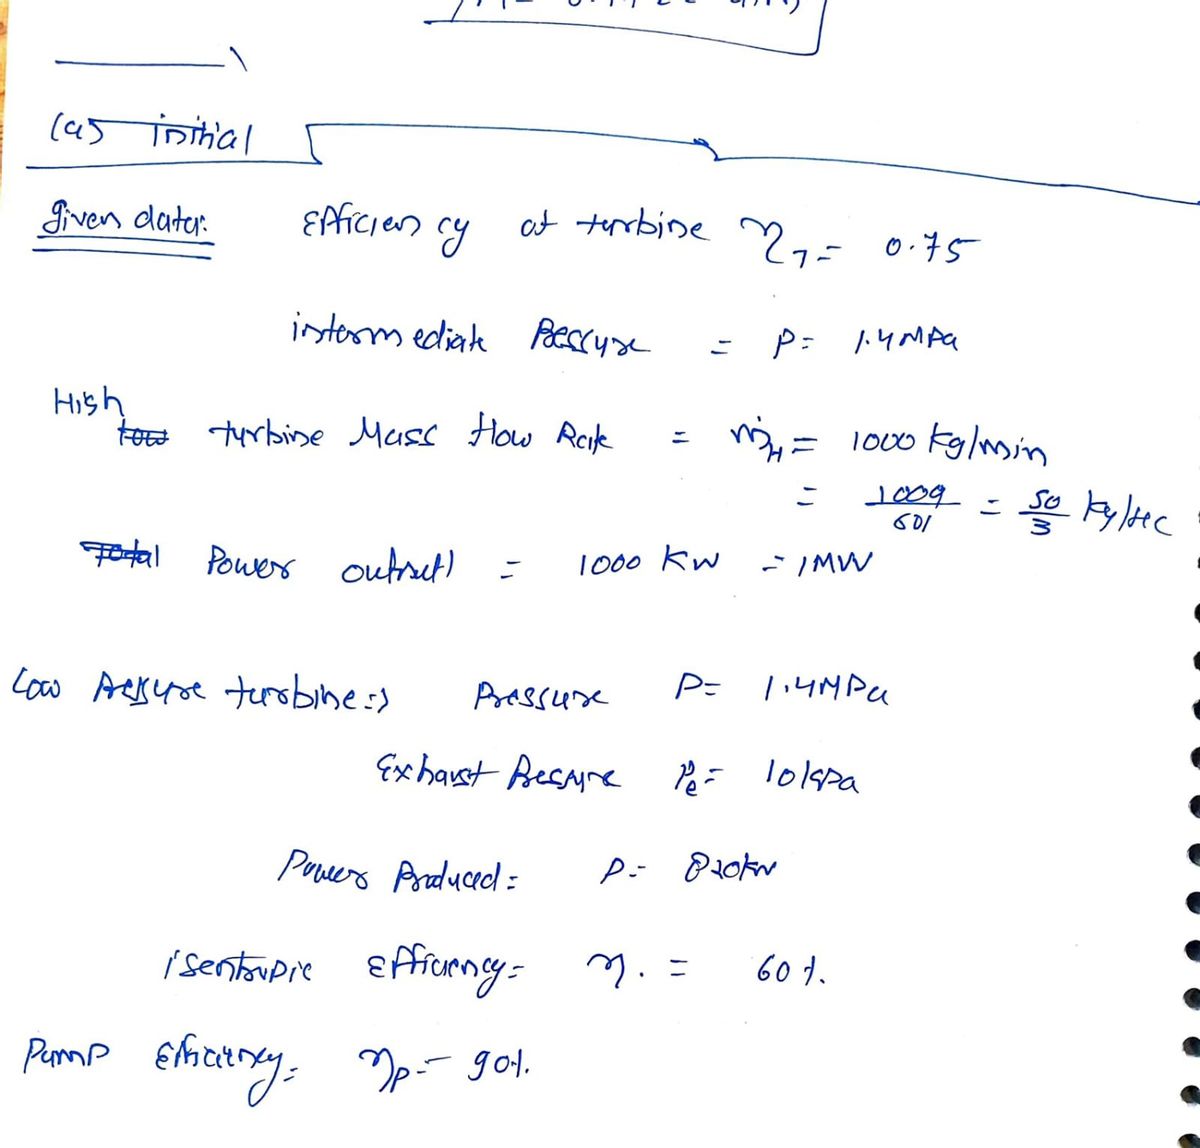 (a) initial
given data: Efficiency of turbine η_T = 0.75
intermediate Pressure = P = 1.4 MPa
High
low turbine Mass flow Rate = ṁ_H = 1000 kg/min
= 1000/60 = 50/3 kg/sec
Total Power output) = 1000 KW = 1MW
Low Pressure turbine => Pressure P = 1.4MPa
Exhaust Pressure P_e = 10kPa
Power Produced = P = 820kw
isentropic Efficiency = η. = 60%.
Pump Efficiency = η_P = 90%.